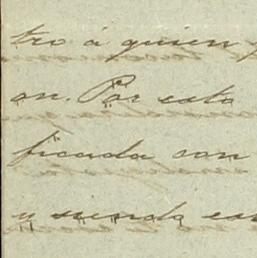 tro á quien
on. Por esto
ficada con
y siendo